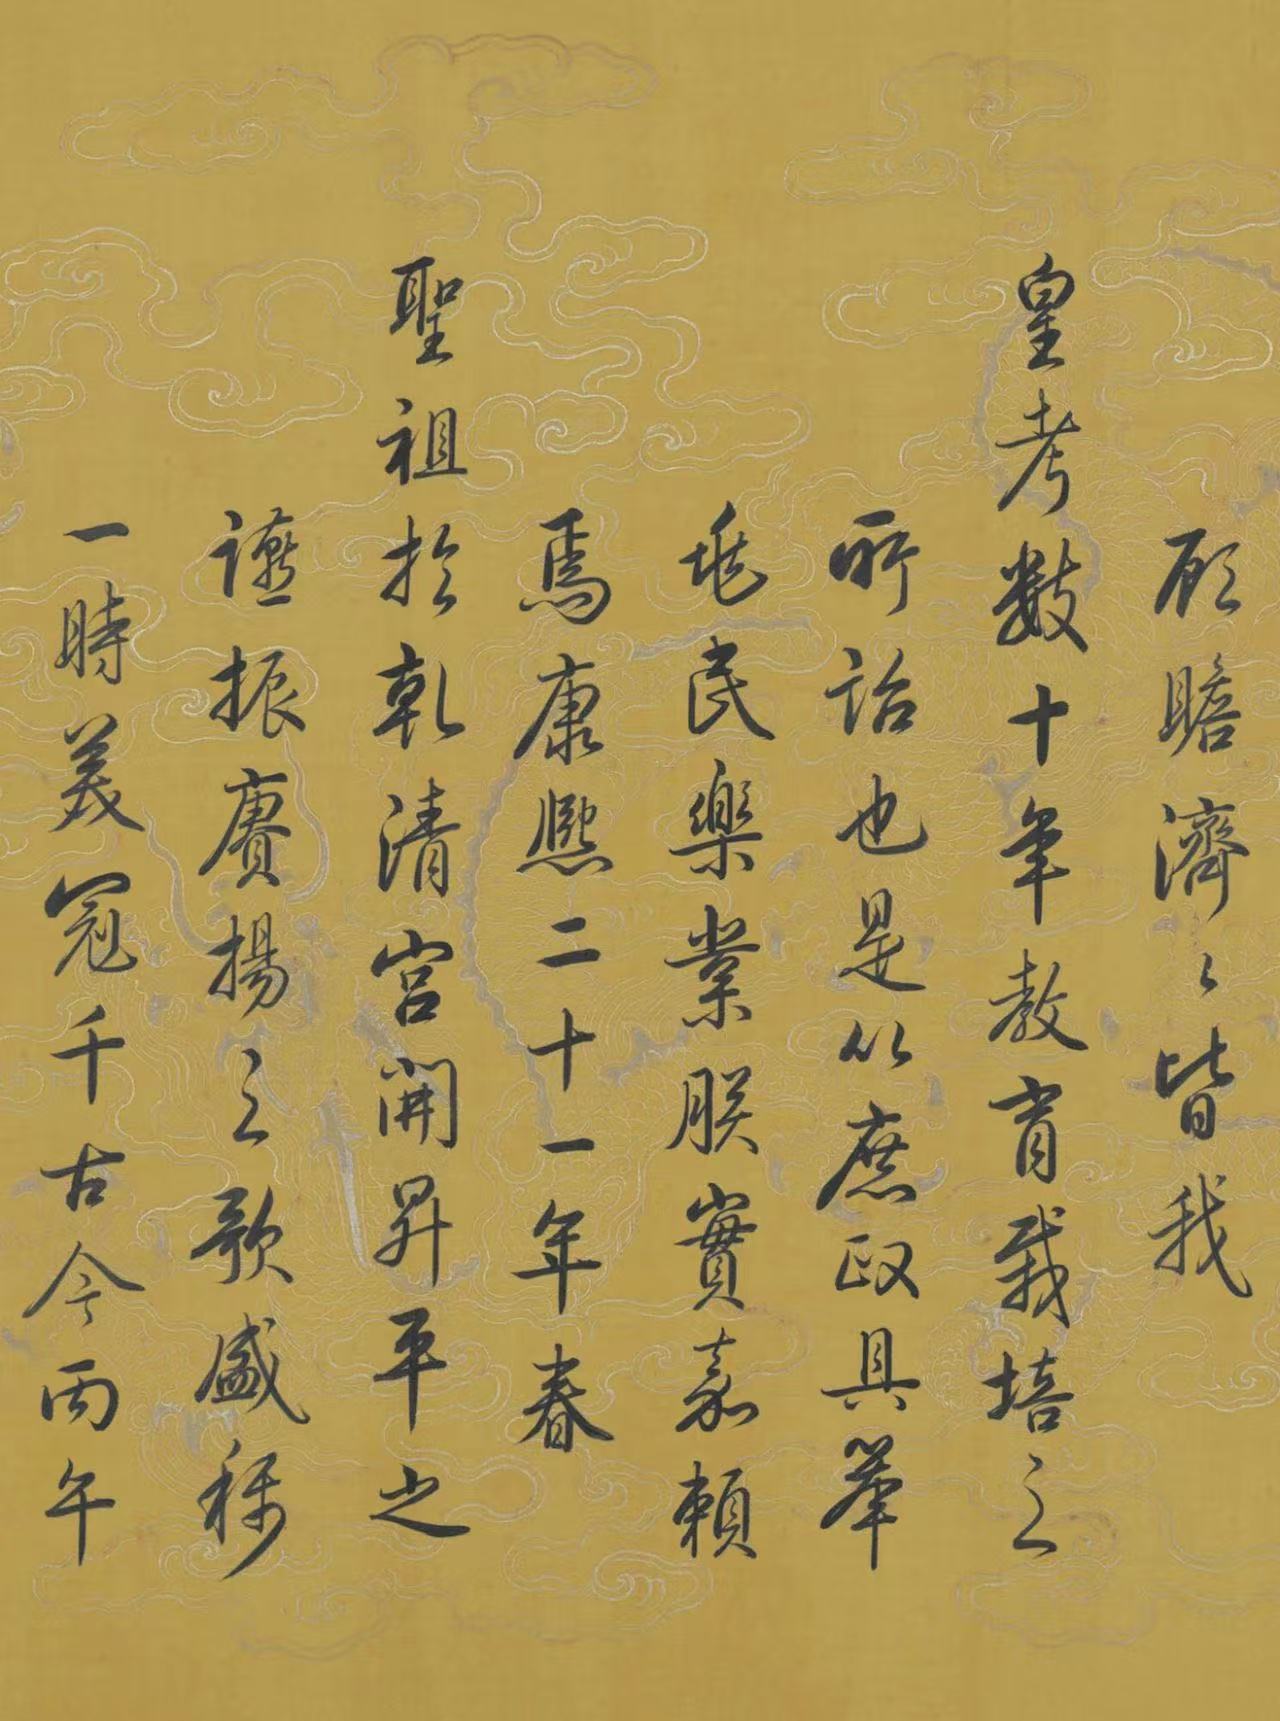 顧瞻濟〻皆我
皇考數十年教育栽培之
所詒也是以庶政具舉
兆民樂業朕實嘉賴
焉康熙二十一年春
聖祖於乾清宮開昇平之
讌振賡揚之歌盛稱
一時美冠千古今丙午